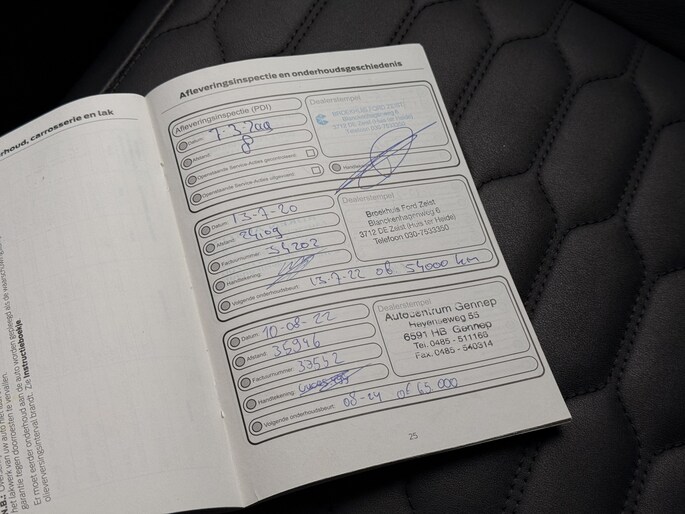 rhoud, carrosserie en lak
het lakwerk van uw auto
garantie tegen doorroesten te vervallen.
Er moet eerder onderhoud aan de auto worden gepleegd als de
olieverversingsinterval brandt. Zie Instructieboekje.
Afleveringsinspectie en onderhoudsgeschiedenis
Afleveringsinspectie (PDI)
Datum:
Afstand: 8
Openstaande Service-Acties gecontroleerd:
Openstaande Service-Acties uitgevoerd:
Dealerstempel
BROEKHUIS FORD ZEIST
Blanckenhagenweg 6
3712 DE Zeist (Huis ter Heide)
Telefoon 030-7533350
Handtekening:
Datum: 13-7-20
Afstand: 24109
Factuurnummer: 34202
Handtekening:
Volgende onderhoudsbeurt: 13-7-22 of 54000 km
Dealerstempel
Broekhuis Ford Zeist
Blanckenhagenweg 6
3712 DE Zeist (Huis ter Heide)
Telefoon 030-7533350
Datum: 10-08-22
Afstand: 35946
Factuurnummer: 37542
Handtekening:
Volgende onderhoudsbeurt: 08-24 of 65.000
Dealerstempel
Autocentrum Gennep
Heyenseweg 55
6591 HB Gennep
Tel. 0485 - 511165
Fax. 0485 - 540314
25